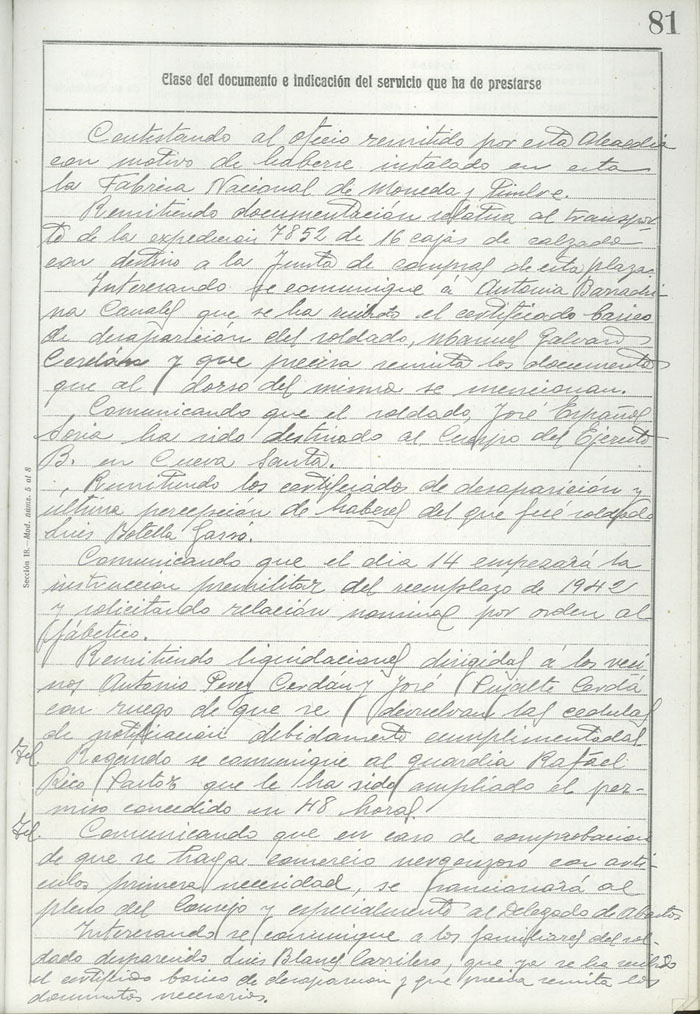 81
Clase del documento e indicación del servicio que ha de prestarse
Contestando al oficio remitido por esta Alcaldia
con motivo de haberse instalado en esta
la Fabrica Nacional de Moneda y Timbre.
Remitiendo documentación relativa al transpor-
te de la expedicion 7852 de 16 cajas de calzado
con destino a la Junta de compras de esta plaza.
Interesando se comunique a Antonia Barrachi-
na Canales que se ha recibido el certificado basico
de desaparición del soldado, Manuel Galvan
Cerdán y que precisa remita los documentos
que al dorso del mismo se mencionan.
Comunicando que el soldado, José Español
Soria ha sido destinado al Cuerpo del Ejército
B. en Cueva Santa.
Remitiendo los certificados de desaparición y
ultima percepcion de haberes del que fué soldado
Luis Botella Gassó.
Comunicando que el dia 14 empezará la
instruccion premilitar del reemplazo de 1942
y solicitando relación nominal por orden al-
fábetico.
Remitiendo liquidaciones dirigidas á los veci-
nos Antonio Perez Cerdán y José Pujalte Cerdá
con ruego de que se devuelvan las cedulas
de notificacion debidamente cumplimentadas.
Tel. Rogando se comunique al guardia Rafael
Rico Pastor que le ha sido ampliado el per-
miso concedido en 48 horas
Tel. Comunicando que en caso de comprobacion
de que se haga comercio vergonzoso con arti-
culos primera necesidad, se sancionará al
pleno del Consejo y especialmente al Delegado de Abastos
Interesando se comunique a los familiares del sol-
dado desaparecido Luis Blanes Carrillero, que ya se ha recibido
el certificado basico de desaparicion y que precisa remita los
documentos necesarios.
Sección 18.—Mod. núms. 5 al 8